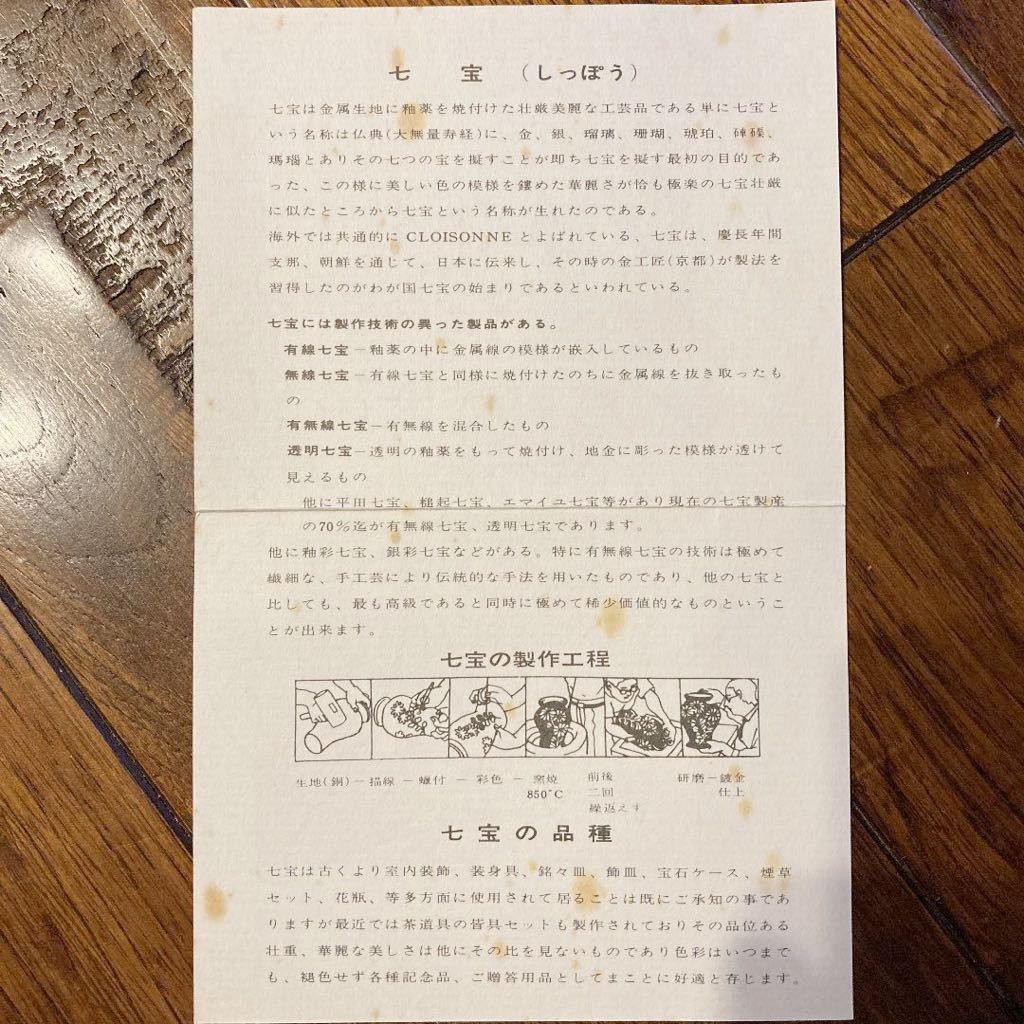 七　宝　（しっぽう）
七宝は金属生地に釉薬を焼付けた壮厳美麗な工芸品である単に七宝と
いう名称は仏典(大無量寿経)に、金、銀、瑠璃、珊瑚、琥珀、硨磲、
瑪瑙とありその七つの宝を擬すことが即ち七宝を擬す最初の目的であ
った、この様に美しい色の模様を鏤めた華麗さが恰も極楽の七宝壮厳
に似たところから七宝という名称が生れたのである。
海外では共通的に CLOISONNE とよばれている、七宝は、慶長年間
支那、朝鮮を通じて、日本に伝来し、その時の金工匠(京都)が製法を
習得したのがわが国七宝の始まりであるといわれている。
七宝には製作技術の異った製品がある。
有線七宝－釉薬の中に金属線の模様が嵌入しているもの
無線七宝－有線七宝と同様に焼付けたのちに金属線を抜き取ったも
の
有無線七宝－有無線を混合したもの
透明七宝－透明の釉薬をもって焼付け、地金に彫った模様が透けて
見えるもの
他に平田七宝、槌起七宝、エマイユ七宝等があり現在の七宝製産
の70%迄が有無線七宝、透明七宝であります。
他に釉彩七宝、銀彩七宝などがある。特に有無線七宝の技術は極めて
繊細な、手工芸により伝統的な手法を用いたものであり、他の七宝と
比しても、最も高級であると同時に極めて稀少価値的なものというこ
とが出来ます。
七宝の製作工程
生地(銅)－描線－蠟付－彩色－窯焼　前後　研磨－鍍金
850°C　二回　仕上
繰返えす
七宝の品種
七宝は古くより室内装飾、装身具、銘々皿、飾皿、宝石ケース、煙草
セット、花瓶、等多方面に使用されて居ることは既にご承知の事であ
りますが最近では茶道具の皆具セットも製作されておりその品位ある
壮重、華麗な美しさは他にその比を見ないものであり色彩はいつまで
も、褪色せず各種記念品、ご贈答用品としてまことに好適と存じます。